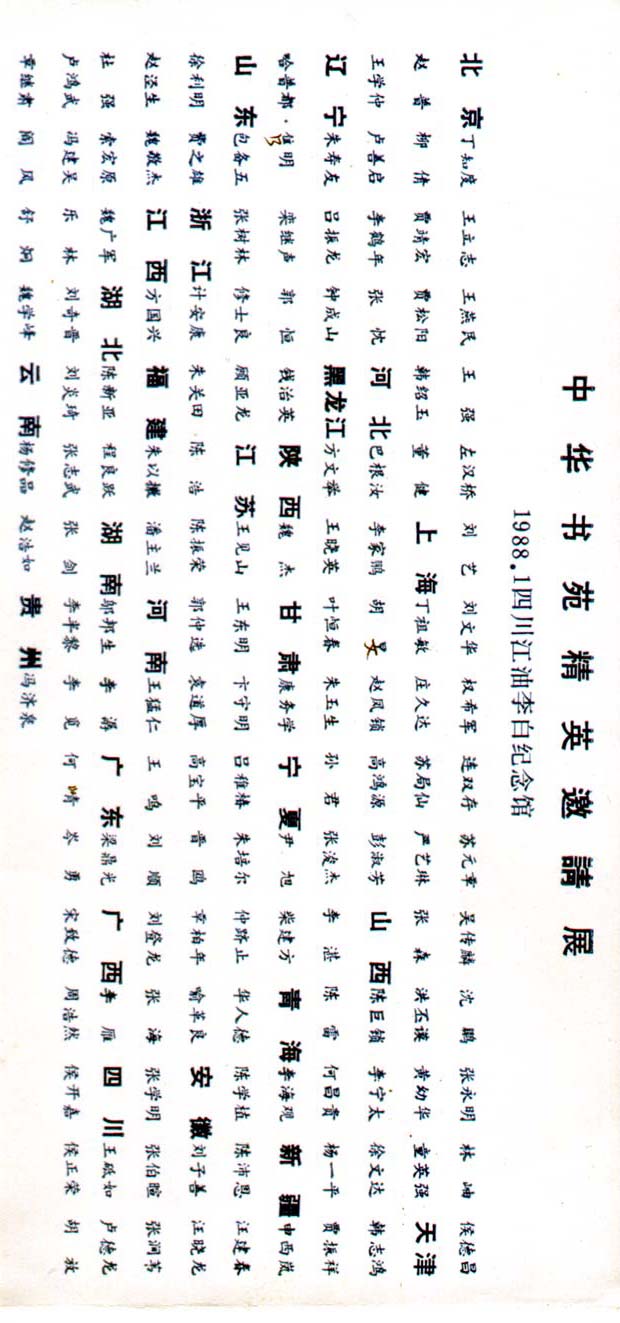 中华书苑精英邀請展
1988.1四川江油李白纪念馆
北京丁知度 王立志 王燕民 王强 左汉桥 刘艺 刘文华 权希军 连双存 苏元章 吴传麟 沈鹏 张永明 林岫 侯德昌
赵普 柳倩 贾靖宏 贾松阳 韩绍玉 董健 上海丁祖敏 庄久达 苏局仙 严艺琳 张森 洪丕谟 黄幼华 童英强 天津
王学仲 卢善启 李鹤年 张忱 河北巴根汝 李家鹏 胡 赵凤锁 高鸿源 彭淑芳 山西陈巨锁 李宁太 徐文达 韩志鸿
辽宁朱寿友 吕振龙 钟成山 黑龙江方文举 王晓英 叶恒春 朱玉生 孙君 张浚杰 李湛 陈雷 何昌贵 杨一平 贾振祥
哈普都·明 栾继声 郭恒 钱治英 陕西魏杰 甘肃康务学 宁夏尹旭 柴建方 青海李海观 新疆申西岚
山东包备五 张树林 修士良 顾亚龙 江苏王见山 王东明 卞守明 吕雅椿 朱培尔 仲跻止 华人德 陈学植 陈沛思 汪建春
徐利明 费之雄 浙江计安康 朱关田 陈浩 陈振荣 郭仲选 袁道厚 高宝平 晋鸥 章柏年 喻革良 安徽刘子善 汪晓龙
赵泾生 魏敬杰 江西方国兴 福建朱以撒 潘主兰 河南王猛仁 王鸣 刘顺 刘登龙 张海 张学明 张伯暄 张涧茗
杜强 索宏原 魏广军 湖北陈新亚 程良跃 湖南邬邦生 李潺 广东梁鼎光 广西李雁 四川王砥如 卢德龙
卢鸿武 冯建吴 乐林 刘奇晋 刘炎琦 张志武 张剑 李半黎 李觅 何崝 岑勇 宋致德 周浩然 侯开嘉 侯正荣 胡放
章继肃 阎风 舒炯 魏学峰 云南杨修品 赵浩如 贵州冯济泉